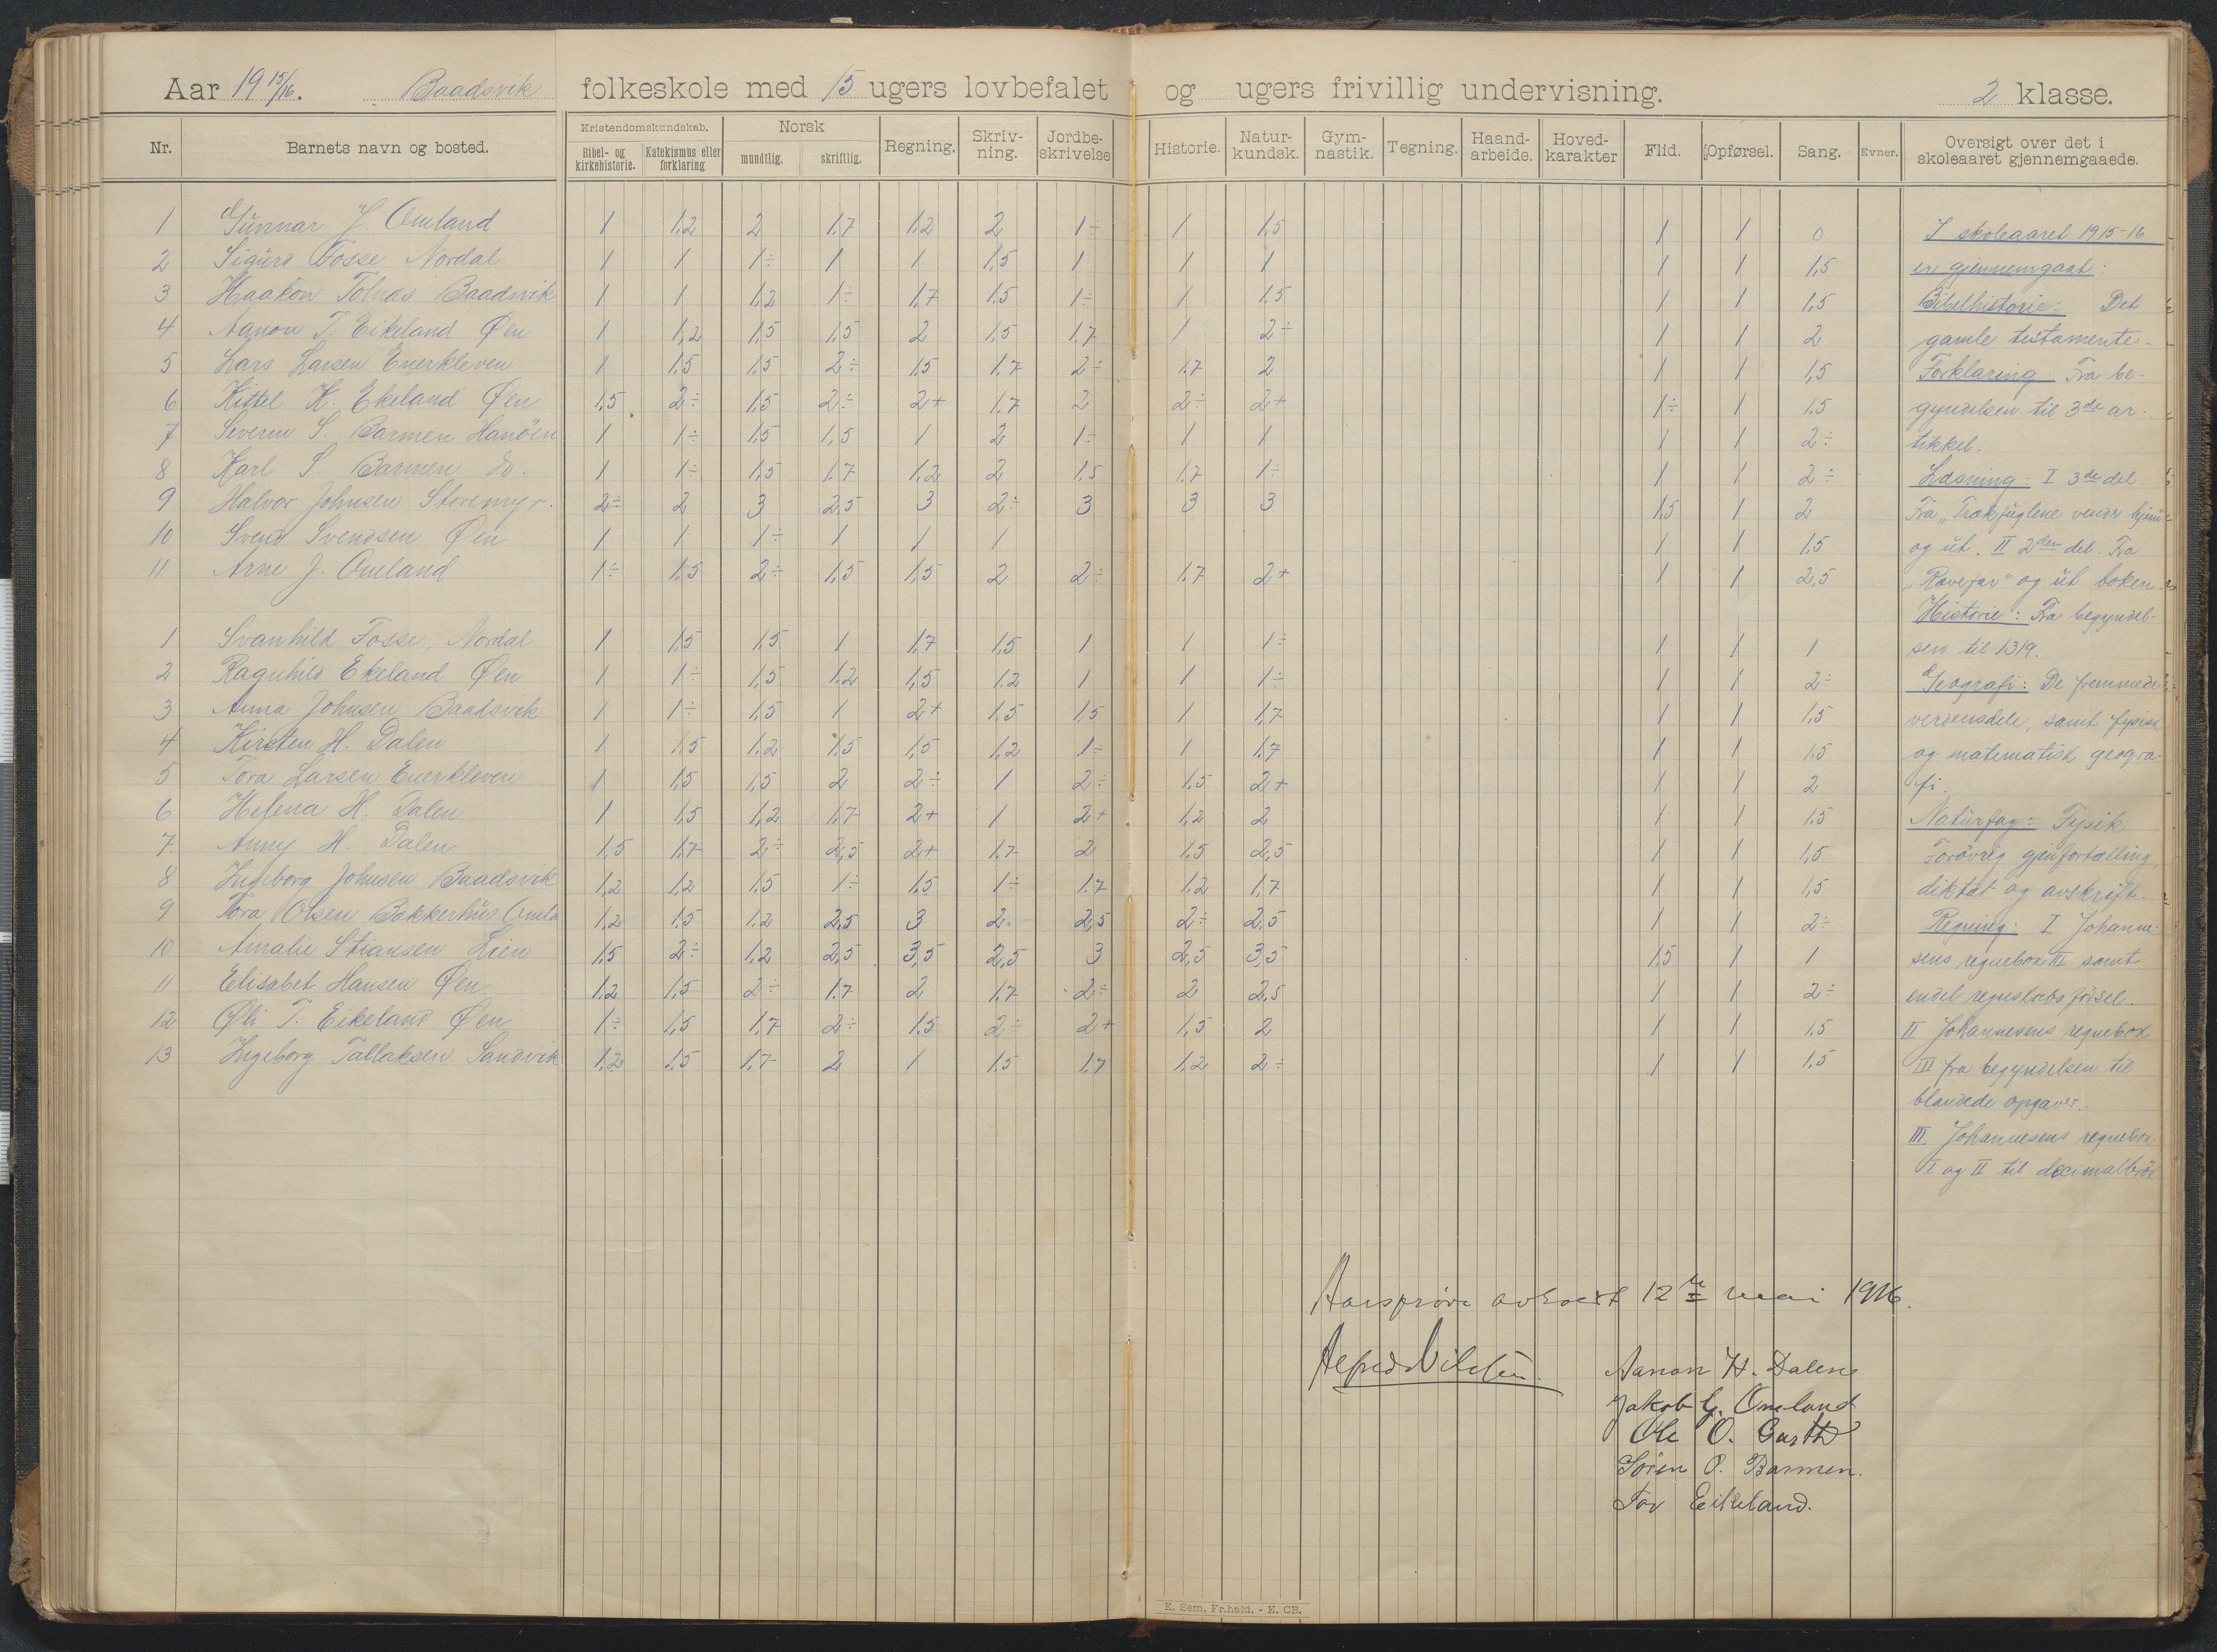 Aar 1915/16. Baadsvik folkeskole med 15 ugers lovbefalet og ugers frivillig undervisning. 2 klasse.
Nr. Barnets navn og bosted. Kristendomskundskab. Bibel- og kirkehistorie. Katekismus eller forklaring Norsk mundtlig. skriftlig. Regning. Skriv-ning. Jordbe-skrivelse Historie. Natur-kundsk. Gym-nastik. Tegning. Haand-arbeide. Hoved-karakter Flid. Opførsel. Sang. Evner. Oversigt over det i skoleaaret gjennemgaaede.
1 Gunnar J. Omland 1 1,2 2 1,7 1,2 2 1÷ 1 1,5 1 1 0
2 Sigurd Fosse Nordal 1 1 1÷ 1 1 1,5 1 1 1 1 1 1,5
3 Haakon Tolnæs Baadsvik 1 1 1,2 1÷ 1,7 1,5 1÷ 1 1,5 1 1 1,5
4 Aanon T. Eikeland Øen 1 1,2 1,5 1,5 2 1,5 1,7 1 2÷ 1 1 2
5 Lars Larsen Enerkleven 1 1,5 1,5 2÷ 1,5 1,7 2÷ 1,7 2 1 1 1,5
6 Kittel K. Ekeland Øen 1,5 2÷ 1,5 2÷ 2+ 1,7 2 2÷ 2+ 1÷ 1 1,5
7 Severin S. Barmen Hanöen 1 1÷ 1,5 1,5 1 2 1÷ 1 1 1 1 2÷
8 Karl S. Barmen do. 1 1÷ 1,5 1,7 1,2 2 1,5 1,7 1÷ 1 1 2÷
9 Halvor Johnsen Storemyr. 2÷ 2 3 2,5 3 2÷ 3 3 3 1,5 1 2
10 Svend Svendsen Øen 1 1 1÷ 1 1 1 1 1 1,5
11 Arne J. Omland 1÷ 1,5 2÷ 1,5 1,5 2 2÷ 1,7 2+ 1 1 2,5
1 Svanhild Fosse, Nordal 1 1,5 1,5 1 1,7 1,5 1 1 1÷ 1 1 1
2 Ragnhild Ekeland Øen 1 1÷ 1,5 1,2 1,5 1,2 1 1 1÷ 1 1 2÷
3 Anna Johnsen Baadsvik 1 1÷ 1,5 1 2+ 1,5 1,5 1 1,7 1 1 1,5
4 Kirsten H. Dalen 1 1,5 1,2 1,5 1,5 1,2 1÷ 1 1,7 1 1 1,5
5 Tora Larsen Enerkleven 1 1,5 1,5 2 2÷ 1 2÷ 1,5 2+ 1 1 2
6 Helena H. Dalen 1 1,5 1,2 1,7 2+ 1 2+ 1,2 2 1 1 1,5
7 Anny H. Dalen 1,5 1,7 2÷ 2,5 2+ 1,7 2 1,5 2,5 1 1 1,5
8 Ingeborg Johnsen Baadsvik 1,2 1,2 1,5 1÷ 1,5 1÷ 1,7 1,2 1,7 1 1 1,5
9 Tora Olsen Bakkerhus Omla 1,2 1,5 1,2 2,5 3 2÷ 2,5 2÷ 2,5 1 1 2÷
10 Amalie Stiansen Lien 1,5 2÷ 1,2 2,5 3,5 2,5 3 2,5 3,5 1,5 1 1
11 Elisabet Hansen Øen 1,2 1,5 2÷ 1,7 2 1,7 2÷ 2 2,5 1 1 2÷
12 Øli T. Eikeland Øen 1÷ 1,5 1,7 2÷ 1,5 2÷ 2+ 1,5 2 1 1 1,5
13 Ingeborg Tallaksen Sandvik 1,2 1,5 1,7 2 1 1,5 1,7 1,2 2÷ 1 1 1,5
I skoleaaret 1915-16
er gjennemgaat:
Bibelhistorie: Det
gamle testamente.
Forklaring: Fra be-
gyndelsen til 3de ar-
tikkel.
Læsning: I 3de del
Fra "Trækfuglene vender hjem"
og ut. II 2den del. Fra
"Rævefar" og ut boken.
Historie: Fra begyndel-
sen til 1319.
Geografi: De fremmede
verdensdele, samt fysisk
og matematisk geogra-
fi.
Naturfag: Fysik
Forövrig gjenfortælling,
diktat og avskrift.
Regning: I Johanne-
sens regnebok III samt
endel regnskabsförsel.
II Johannesens regnebok
III fra begyndelsen til
blandede opgaver.
III. Johannesens regnebok
I og II til decimalbrök
Aarsprøve avholdt 12te mai 1916.
Alfred Nilsen.
Aanon H. Dalene
Jakob G. Omland
Ole O. Garth
Sören O. Barmen.
Tov Eikeland.
E. Sem, Fr.hald. - E. CB.